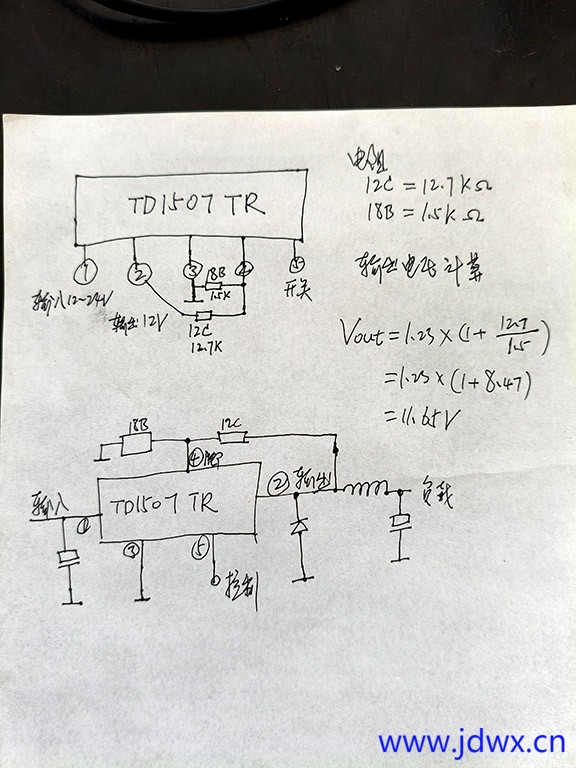 TD1507 TR
① ② ③ 18B ④ ⑤
1.5K
输入12~24V 输出12V 开关
12C
12.7K
电阻
12C = 12.7KΩ
18B = 1.5KΩ
输出电压计算
Vout = 1.23 × (1 + 12.7/1.5)
= 1.23 × (1 + 8.47)
= 11.65V
18B 12C
④脚
输入 ① TD1507 TR ② 输出 负载
③ ⑤
控制
www.jdwx.cn